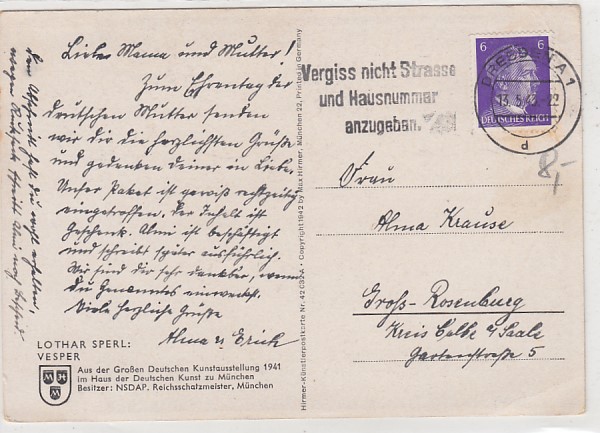 Liebe Mama und Mutter!
Zum Ehrentag der
deutschen Mutter senden
wir dir die herzlichsten Grüße
und gedenken deiner in Liebe.
Unser Paket ist gewiß rechtzeitig
eingetroffen. Der Inhalt ist
Geschenk. Almi ist beschäftigt
und schreibt später ausführlich.
Wir sind dir sehr dankbar, wenn
du Genanntes einweckst.
Viele herzliche Grüße
Alma u Erich
LOTHAR SPERL:
VESPER
Aus der Großen Deutschen Kunstausstellung 1941
im Haus der Deutschen Kunst zu München
Besitzer: NSDAP. Reichsschatzmeister, München
Hirmer-Künstlerpostkarte Nr. 42032A · Copyright 1942 by Max Hirmer, München 22, Printed in Germany
Vergiss nicht Strasse
und Hausnummer
anzugeben.
6 6
DEUTSCHES REICH
DRESDEN A 1
d
8,-
Frau
Alma Krause
Groß-Rosenburg
Kreis Calbe a/Saale
Gartenstraße 5